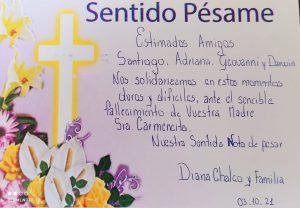 Sentido Pésame
Estimados Amigos
Santiago, Adriana, Geovanni y Darwin
Nos solidarizamos en estos momentos
duros y dificiles, ante el sencible
fallecimiento de Vuestra Madre
Sra. Carmencita.
Nuestra Sentida Nota de pesar
Diana Chalco y Familia
03.10.21